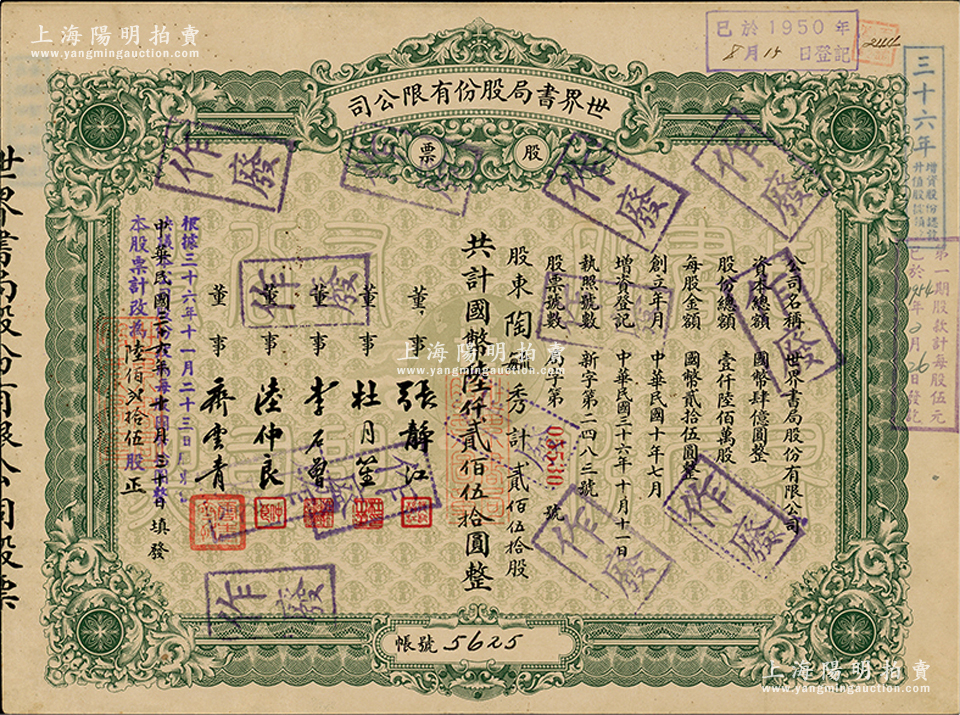 上海陽明拍賣
www.yangmingauction.com
已於1950年
8月14日登記
三十六年
增資股份總額
第一期股款計每股伍元
世界書局股份有限公司
股票
公司名稱 世界書局股份有限公司
資本總額 國幣肆億圓整
股份總額 壹仟陸佰萬股
每股金額 國幣貳拾伍圓整
創立年月 中華民國十年七月
增資登記 中華民國三十六年十月十一日
執照號數 新字第二四八三號
股票號數 局字第 03530 號
股東 陶毓秀 計 貳佰伍拾股
共計國幣陸仟貳佰伍拾圓整
董事 張靜江
董事 杜月笙
董事 李石曾
董事 陸仲良
董事 齊雲青
根據三十六年十一月二十三日
本股票計改為陸佰貳拾伍股正
填發
作廢
作廢
作廢
作廢
作廢
作廢
作廢
作廢
作廢
帳號 5625
世界書局股份有限公司股票
上海陽明拍賣
www.yangmingauction.com
上海陽明拍賣
www.yangmingauction.com